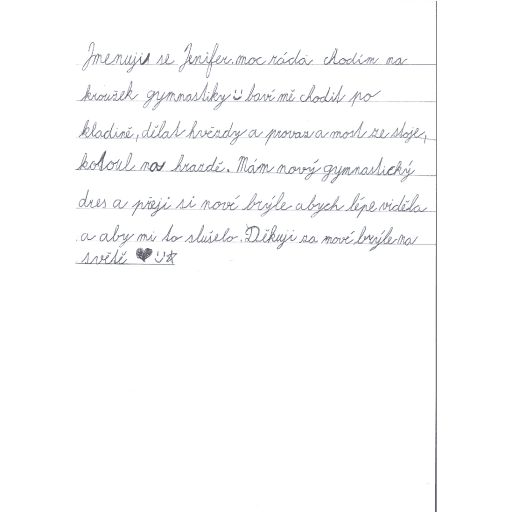 Jmenuji se Jenifer. moc ráda chodím na
kroužek gymnastiky baví mě chodit po
kladině, dělat hvězdy a provaz a most ze stoje,
kotoul na hrazdě. Mám nový gymnastický
dres a přeji si nové brýle abych lépe viděla
a aby mi to slušelo. Děkuji za nové brýle na
světě